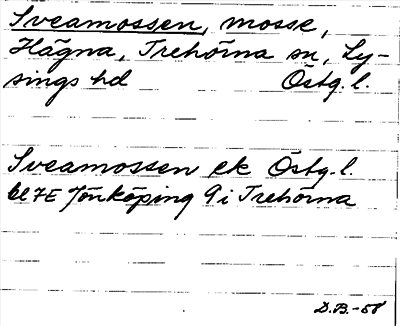 Sveamossen, mosse,
Hägna, Trehörna sn, Ly-
sings hd Östg. l.
Sveamossen ek Östg. l.
bl 7E Jönköping 9 i Trehörna
D.B.-58